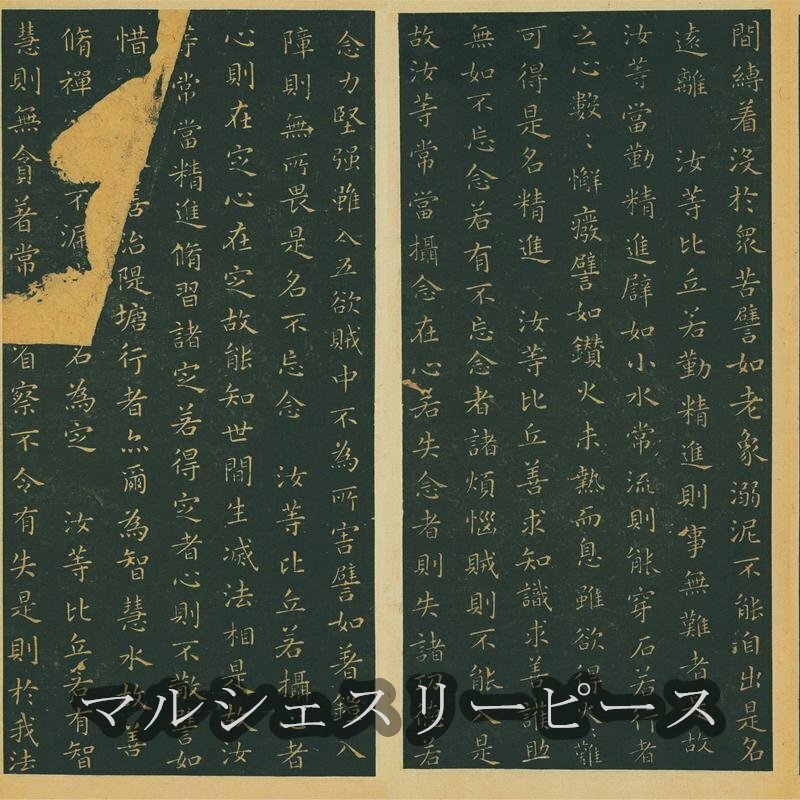 間縛着沒於衆苦譬如老象溺泥不能自出是名
遠離　汝等比丘若勤精進則事無難者故
汝等當勤精進譬如小水常流則能穿石若行者
之心數〻懈癈譬如鑽火未熱而息雖欲得火難
可得是名精進　汝等比丘善求知識求善護助
無如不忘念若有不忘念者諸煩惱賊則不能入是
故汝等常當攝念在心若失念者則失諸功德若
念力堅强雖入五欲賊中不為所害譬如著鎧入
障則無所畏是名不忘念　汝等比丘若攝心者
心則在定心在定故能知世間生滅法相是故汝
等常當精進脩習諸定若得定者心則不散譬如
惜善治隄塘行者亦爾為智慧水故善
脩禪不漏名為定　汝等比丘若有智
慧則無貪著常省察不令有失是則於我法
マルシェスリーピース